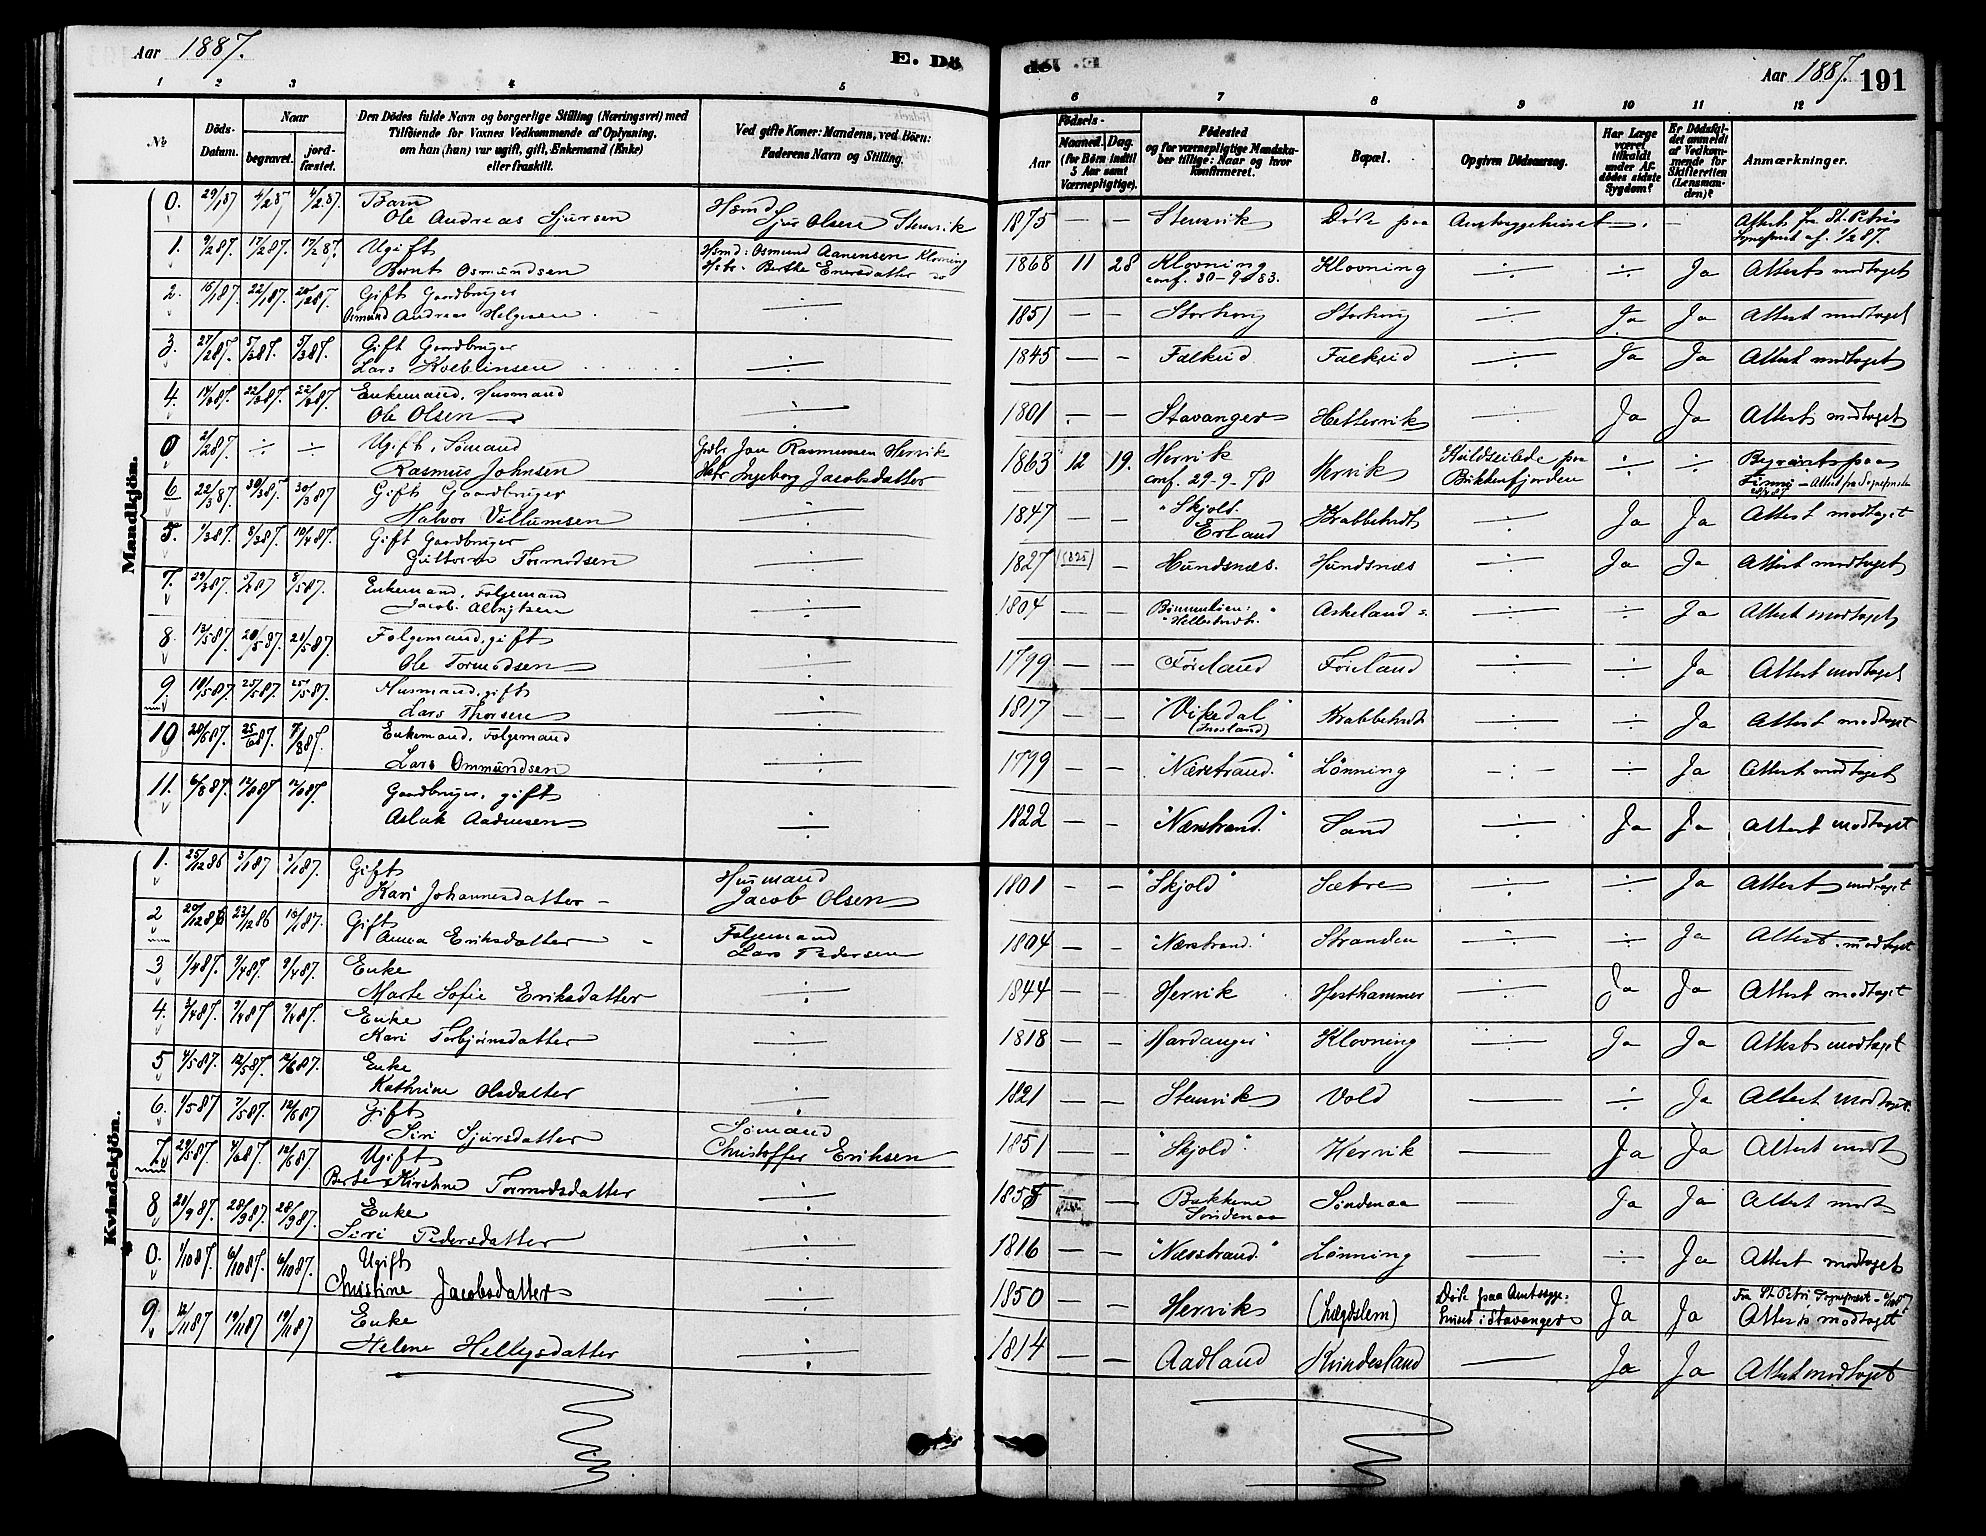 Aar 1887. E. Dö
de. Aar 1887. 191
1 2 3 4 5 6 7 8 9 10 11 12
No
Döds-Datum.
Naar
begravet.
jordfæstet.
Den Dödes fulde Navn og borgerlige Stilling (Næringsvei) med
Tilföiende for Voxnes Vedkommende af Oplysning,
om han (hun) var ugift, gift, Enkemand (Enke)
eller fraskilt.
Ved gifte Koner: Mandens, ved Börn:
Faderens Navn og Stilling.
Födsels-
Aar
Maaned. Dag.
(for Börn indtil
5 Aar samt
Værnepligtige).
Födested
og for værnepligtige Mandska-
ber tillige: Naar og hvor
konfirmeret.
Bopæl.
Opgiven Dödsaarsag.
Har Læge
været
tilkaldt
under Af-
dödes sidste
Sygdom?
Er Dödsfal-
det anmeldt
af Vedkom-
mende for
Skifteretten
(Lensman-
den)?
Anmærkninger.
Mandkjön.
0. 29/1 87 4/2 87 4/2 87. Barn Hsmd
Ole Andreas Sjursen Sjur Olsen Stensvik 1875 — — Stensvik Døde paa Amtssygehuset — . — Attest fra St. Petri
Sognepræst af 1/2 87.
1. 9/2 87. 17/2 87. 17/2 87. Ugift Hsmd: Osmund Aanensen Klovning
Bernt Osmundsen Hstr. Berthe Enersdatter do 1868 11 28 Klovning Klovning ÷ ÷ Ja Attest modtaget
conf. 30-9-83.
2. 16/1 87. 22/1 87. 20/2 87. Gift Gaardbruger
Osmund Andreas Helgesen ÷ 1851 — — Storhoug Storhoug ÷ Ja Ja Attest modtaget
3. 27/2 87. 5/3 87. 5/3 87. Gift Gaardbruger
Lars Kolbeinsen ÷ 1845 — — Falkeid Falkeid ÷ Ja Ja Attest modtaget
4. Enkemand, Husmand
Ole Olsen ÷ 1801 — — Stavanger Hettervik — Ja Ja Attest modtaget
0 2/2 87. ÷ ÷ Ugift, Sømand Grdbr Jon Rasmussen Hervik
Rasmus Johnsen Hstr Ingeborg Jacobsdatter 1863 12 19. Hervik Hervik Kuldseilede paa ÷ ÷
conf. 29-9-78 Bukkenfjorden
6 22/3 87. 30/3 87. 30/3 87 Gift Gaardbruger
Halvor Villumsen ÷ 1847 — — "Skjold. Krabbetvedt ÷ Ja Ja Attest modtaget
Erland
5. 1/3 87. 8/3 87. 10/4 87. Gift Gaardbruger
Guttorm Tormodsen ÷ 1827 (1825) — Hundsnæs. Hundsnæs ÷ Ja Ja Attest modtaget
7. 29/3 87. 8/5 87. Enkemand, Følgemand
Jacob Albrijtsen ÷ 1804 — — Askeland ÷ ÷ Ja Attest modtaget
8. 13/5 87. 20/5 87. 21/5 87. Følgemand, gift
Ole Tormodsen ÷ 1799 — — Føreland Føreland ÷ ÷ Ja Attest modtaget
9. 19/5 87. 25/5 87. 25/5 87. Husmand, gift
Lars Thorsen ÷ 1817 — — "Vikedal" Krabbetvedt ÷ ÷ Ja Attest modtaget
10 20/6 87. 25/6 87. 7/8 87. Enkemand, Følgemand
Lars Ommundsen ÷ 1799 — — "Nærstrand." Lønning ÷ ÷ Ja Attest modtaget
11. 6/8 87. 12/8 87 12/8 87. Gaardbruger, gift
Aslak Aadnesen ÷ 1822 — — "Nærstrand." Sand ÷ Ja Ja Attest modtaget
Kvindekjön.
1. 25/12 86 3/1 87 3/1 87. Gift Husmand
Kari Johannesdatter Jacob Olsen 1801 — — "Skjold" Sætre ÷ ÷ Ja Attest modtaget
2 20/12 86 23/12 86 10/1 87. Gift Følgemand
Anna Eriksdatter Lars Pedersen 1804 — — "Nærstrand." Stranden ÷ ÷ Ja Attest modtaget
3 1/4 87. 9/4 87. 9/4 87. Enke
Marte Sofie Eriksdatter ÷ 1844 — — Hervik Hesthammer ÷ Ja Ja Attest modtaget
4. 3/4 87. 9/4 87. 9/4 87. Enke
Kari Torbjørnsdatter ÷ 1818 — — "Hardanger" Klovning ÷ Ja Ja Attest modtaget
5 4/5 87. 12/5 87. 12/6 87. Enke
Kathrine Olsdatter ÷ 1821 — — Stensvik Vold — ÷ Ja Attest modtaget.
6. 1/5 87 7/5 87. 12/6 87 Gift Sømand
Siri Sjursdatter Christoffer Eriksen 1851 — — "Skjold" Hervik — Ja Ja Attest modt
7. 29/5 87. 4/6 87. 12/6 87 Ugift
Berte Kirstine Tormodsdatter ÷ — Bakkene Søndenaa — Ja Ja Attest modt
Søndenaa
8 21/9 87. 28/9 87. 28/9 87. Enke
Siri Pedersdatter ÷ 1816 — — "Nærstrand." Lønning — ÷ Ja Attest modtaget
0. 1/10 87. 6/10 87. 6/10 87. Ugift
Christine Jacobsdatter ÷ 1850 — — Hervik (Lægdslem) Døde paa Amtssyge- Ja Ja Fra St. Petri Sognepræst
huset i Stavanger Attest modtaget
9. 12/11 87 19/11 87 19/11 87. Enke
Helene Helljesdatter ÷ 1814 — — Aadland Kvindesland — Ja Ja Attest modtaget